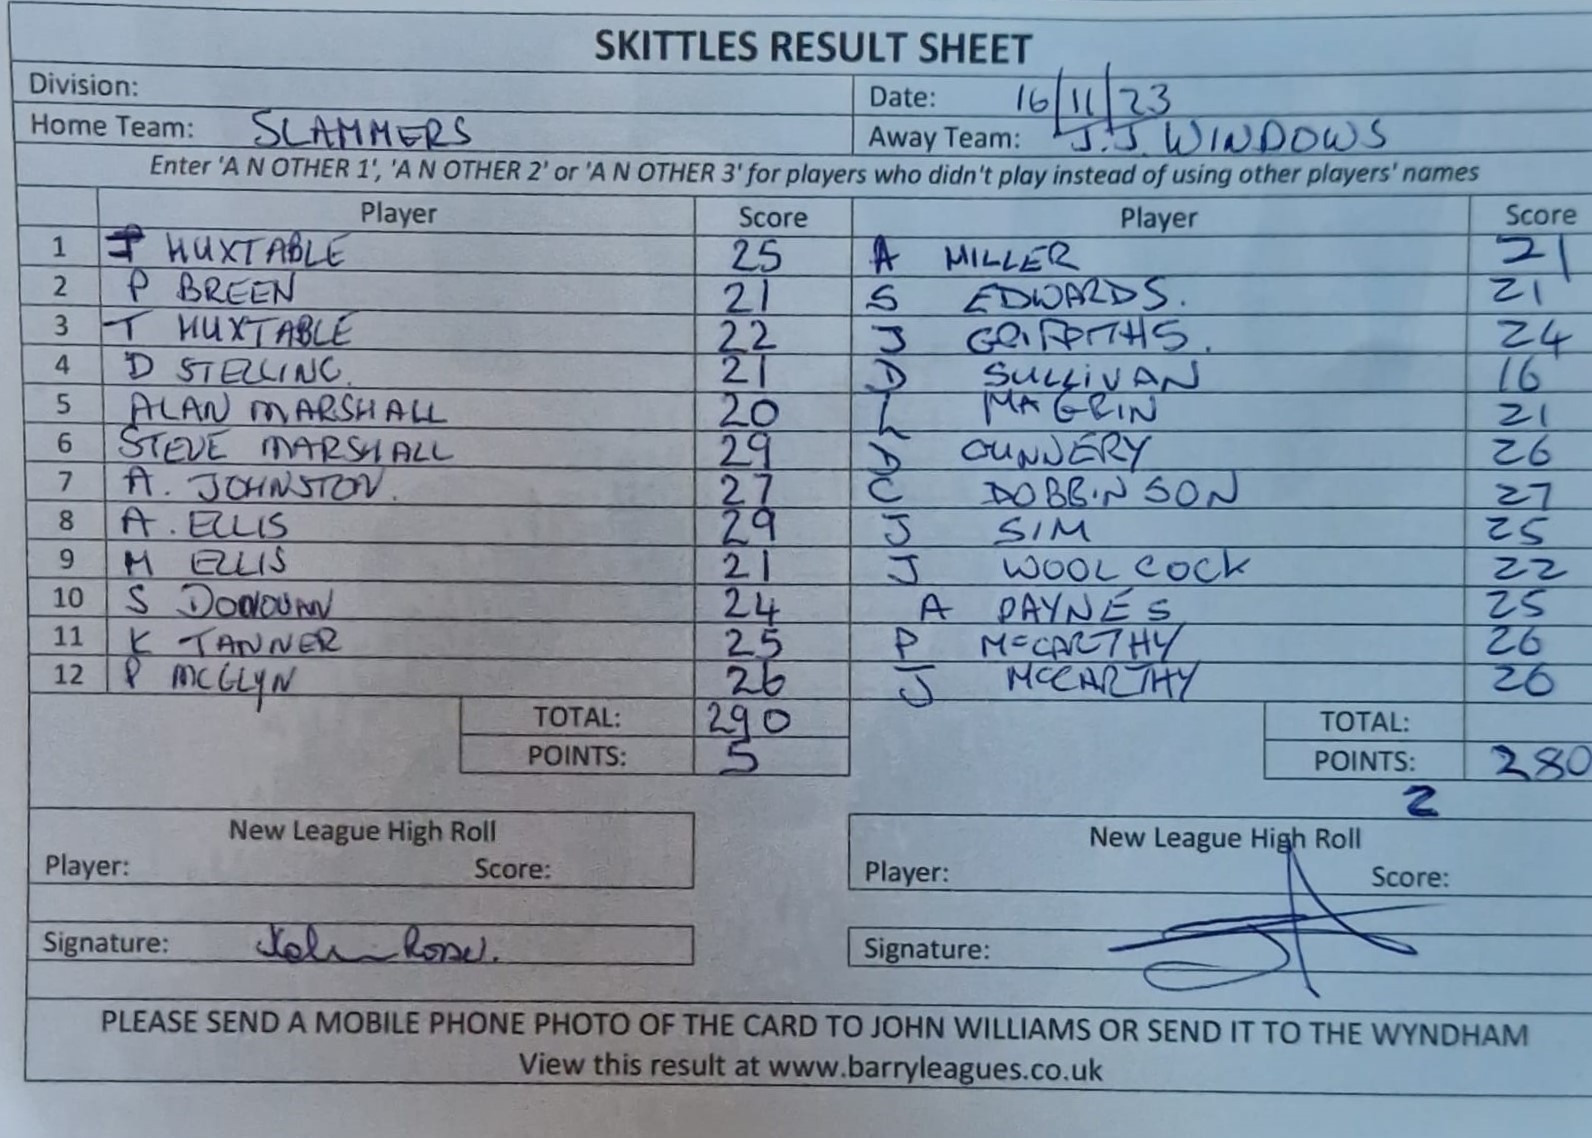 SKITTLES RESULT SHEET
Division: Date: 16/11/23
Home Team: SLAMMERS Away Team: J.J. WINDOWS
Enter 'A N OTHER 1', 'A N OTHER 2' or 'A N OTHER 3' for players who didn't play instead of using other players' names
Player Score Player Score
1 HUXTABLE 25 A MILLER 21
2 P BREEN 21 S EDWARDS. 21
3 T HUXTABLE 22 J GRIFFITHS. 24
4 D STELLING. 21 D SULLIVAN 16
5 ALAN MARSHALL 20 L MAGRIN 21
6 STEVE MARSHALL 29 D GUNNERY 26
7 A. JOHNSTON. 27 C DOBBINSON 27
8 A. ELLIS 29 J SIM 25
9 M ELLIS 21 J WOOLCOCK 22
10 S DONOVAN 24 A PAYNES 25
11 K TANNER 25 P McCARTHY 26
12 P MCGLYN 26 J McCARTHY 26
TOTAL: 290 TOTAL:
POINTS: 5 POINTS: 280
2
New League High Roll New League High Roll
Player: Score: Player: Score:
Signature: John Signature:
PLEASE SEND A MOBILE PHONE PHOTO OF THE CARD TO JOHN WILLIAMS OR SEND IT TO THE WYNDHAM
View this result at www.barryleagues.co.uk